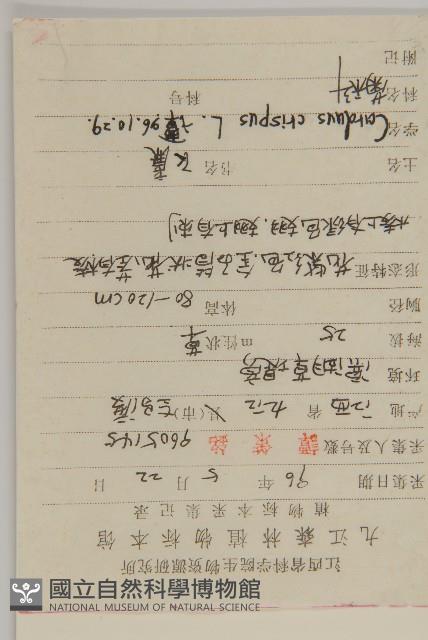 江西省科学院生物资源研究所
九江森林植物标本馆
植物标本采集记录
采集日期 96 年 5 月 22 日
采集人及号数 譚策銘 9605145
产地 江西 省 九江 县(市)
环境
海拔 25 m 性状 草
胸径 体高 80—120cm
形态特征 花紫红色,全为筒状花,茎有棱
棱上有绿色翅,翅上有刺
土名 书名 飞廉
学名 Carduus crispus L. 96.10.29.
科名 菊科 科号
附记
國立自然科學博物館
NATIONAL MUSEUM OF NATURAL SCIENCE